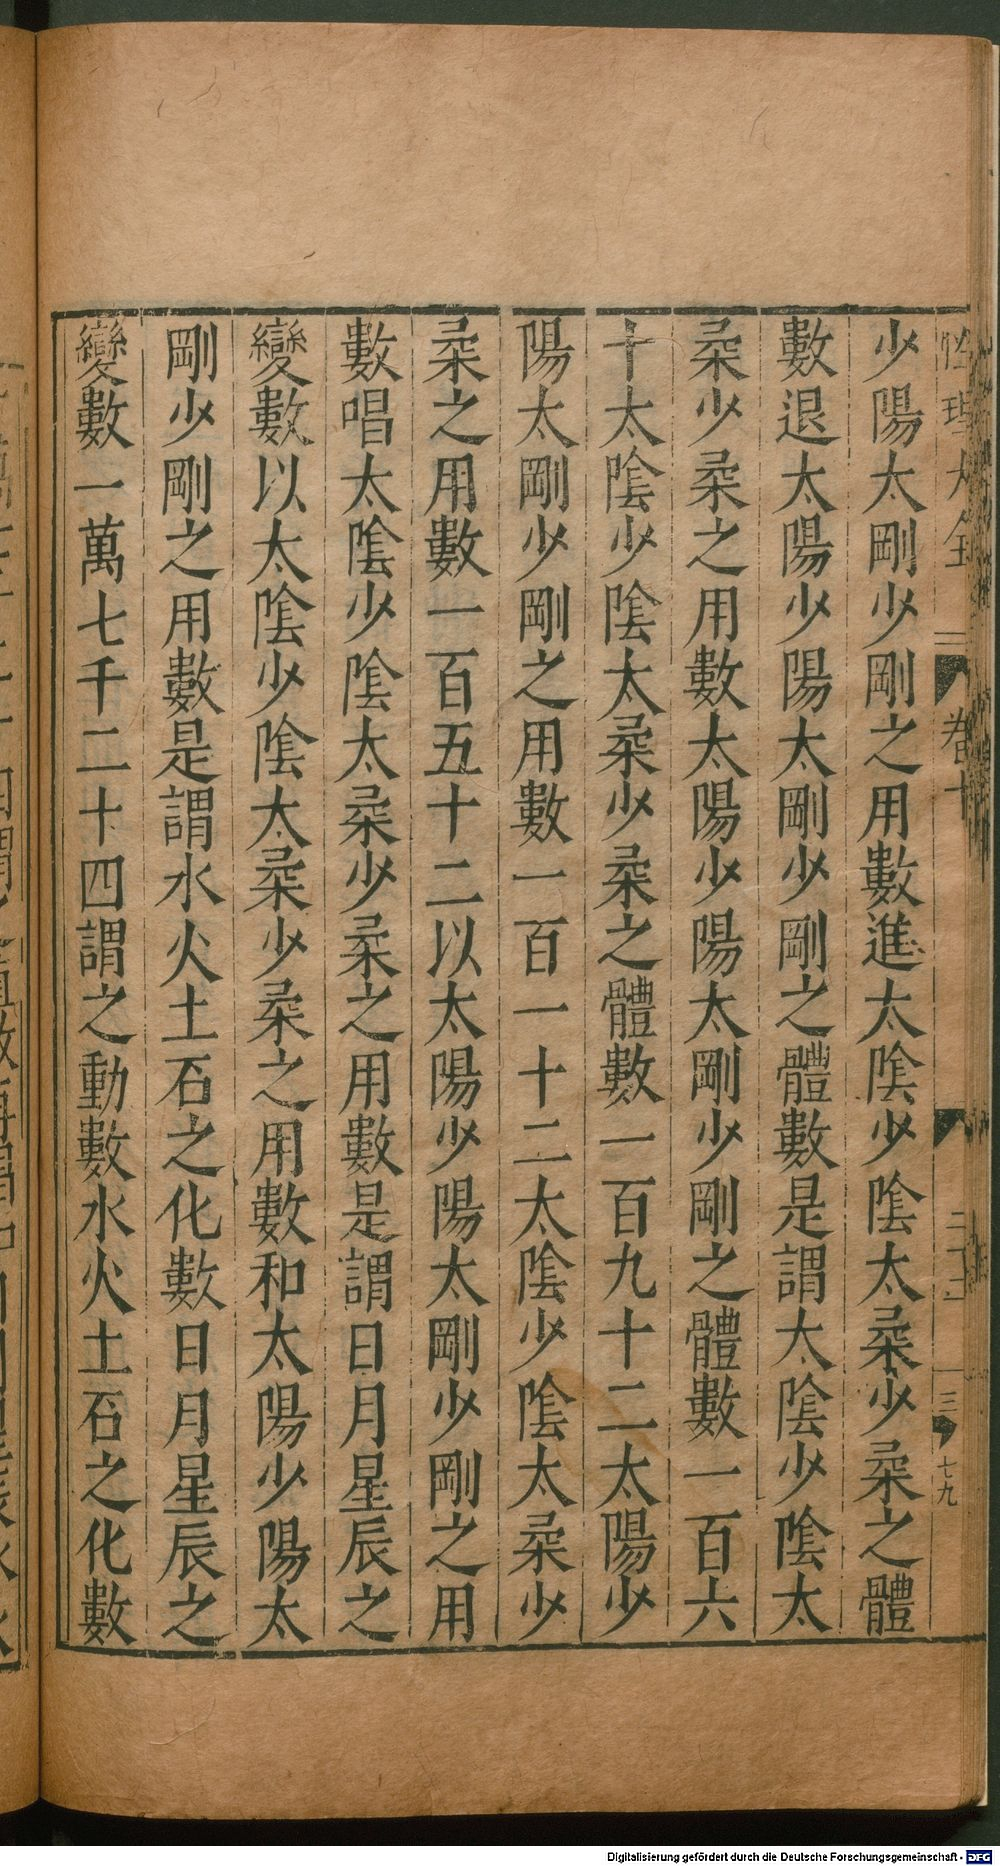 性理大全 卷十 三 七九
少陽太剛少剛之用數進太陰少陰太柔少柔之體
數退太陽少陽太剛少剛之體數是謂太陰少陰太
柔少柔之用數太陽少陽太剛少剛之體數一百六
十太陰少陰太柔少柔之體數一百九十二太陽少
陽太剛少剛之用數一百一十二太陰少陰太柔少
柔之用數一百五十二以太陽少陽太剛少剛之用
數唱太陰少陰太柔少柔之用數是謂日月星辰之
變數以太陰少陰太柔少柔之用數和太陽少陽太
剛少剛之用數是謂水火土石之化數日月星辰之
變數一萬七千二十四謂之動數水火土石之化數
Digitalisierung gefördert durch die Deutsche Forschungsgemeinschaft - DFG